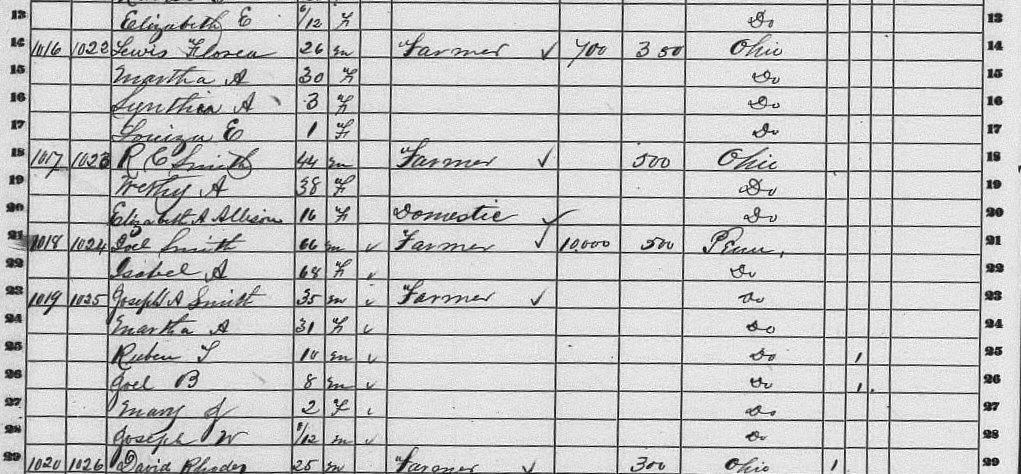 13 Elizabeth E 6/12 F Do 13
14 1016 1022 Lewis Florea 26 m Farmer ✓ 700 350 Ohio 14
15 Martha A 30 F Do 15
16 Synthia A 3 F Do 16
17 Louiza E 1 F Do 17
18 1017 1023 R C Smith 44 m Farmer ✓ 500 Ohio 18
19 A 38 F Do 19
20 Elizabeth A Allison 16 F Domestic ✓ Do 20
21 1018 1024 Joel Smith 66 m ✓ Farmer ✓ 10,000 500 Penn, 21
22 Isabel A 68 F ✓ Do 22
23 1019 1025 Joseph A Smith 35 m ✓ Farmer ✓ Do 23
24 Martha A 31 F ✓ Do 24
25 Ruben T 10 m ✓ Do 1 25
26 Joel B 8 m ✓ Do 1 26
27 Mary J 2 F ✓ Do 27
28 Joseph W /12 m ✓ Do 28
29 1020 1026 David Rhodes 25 m Farmer ✓ 300 Ohio 1 29